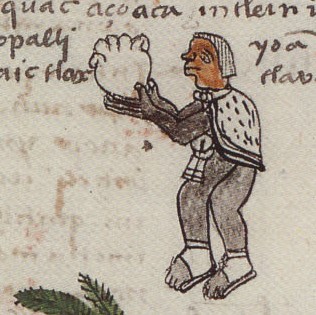 quac açoaca intlein i
opalli yoã
aic tlax tlav